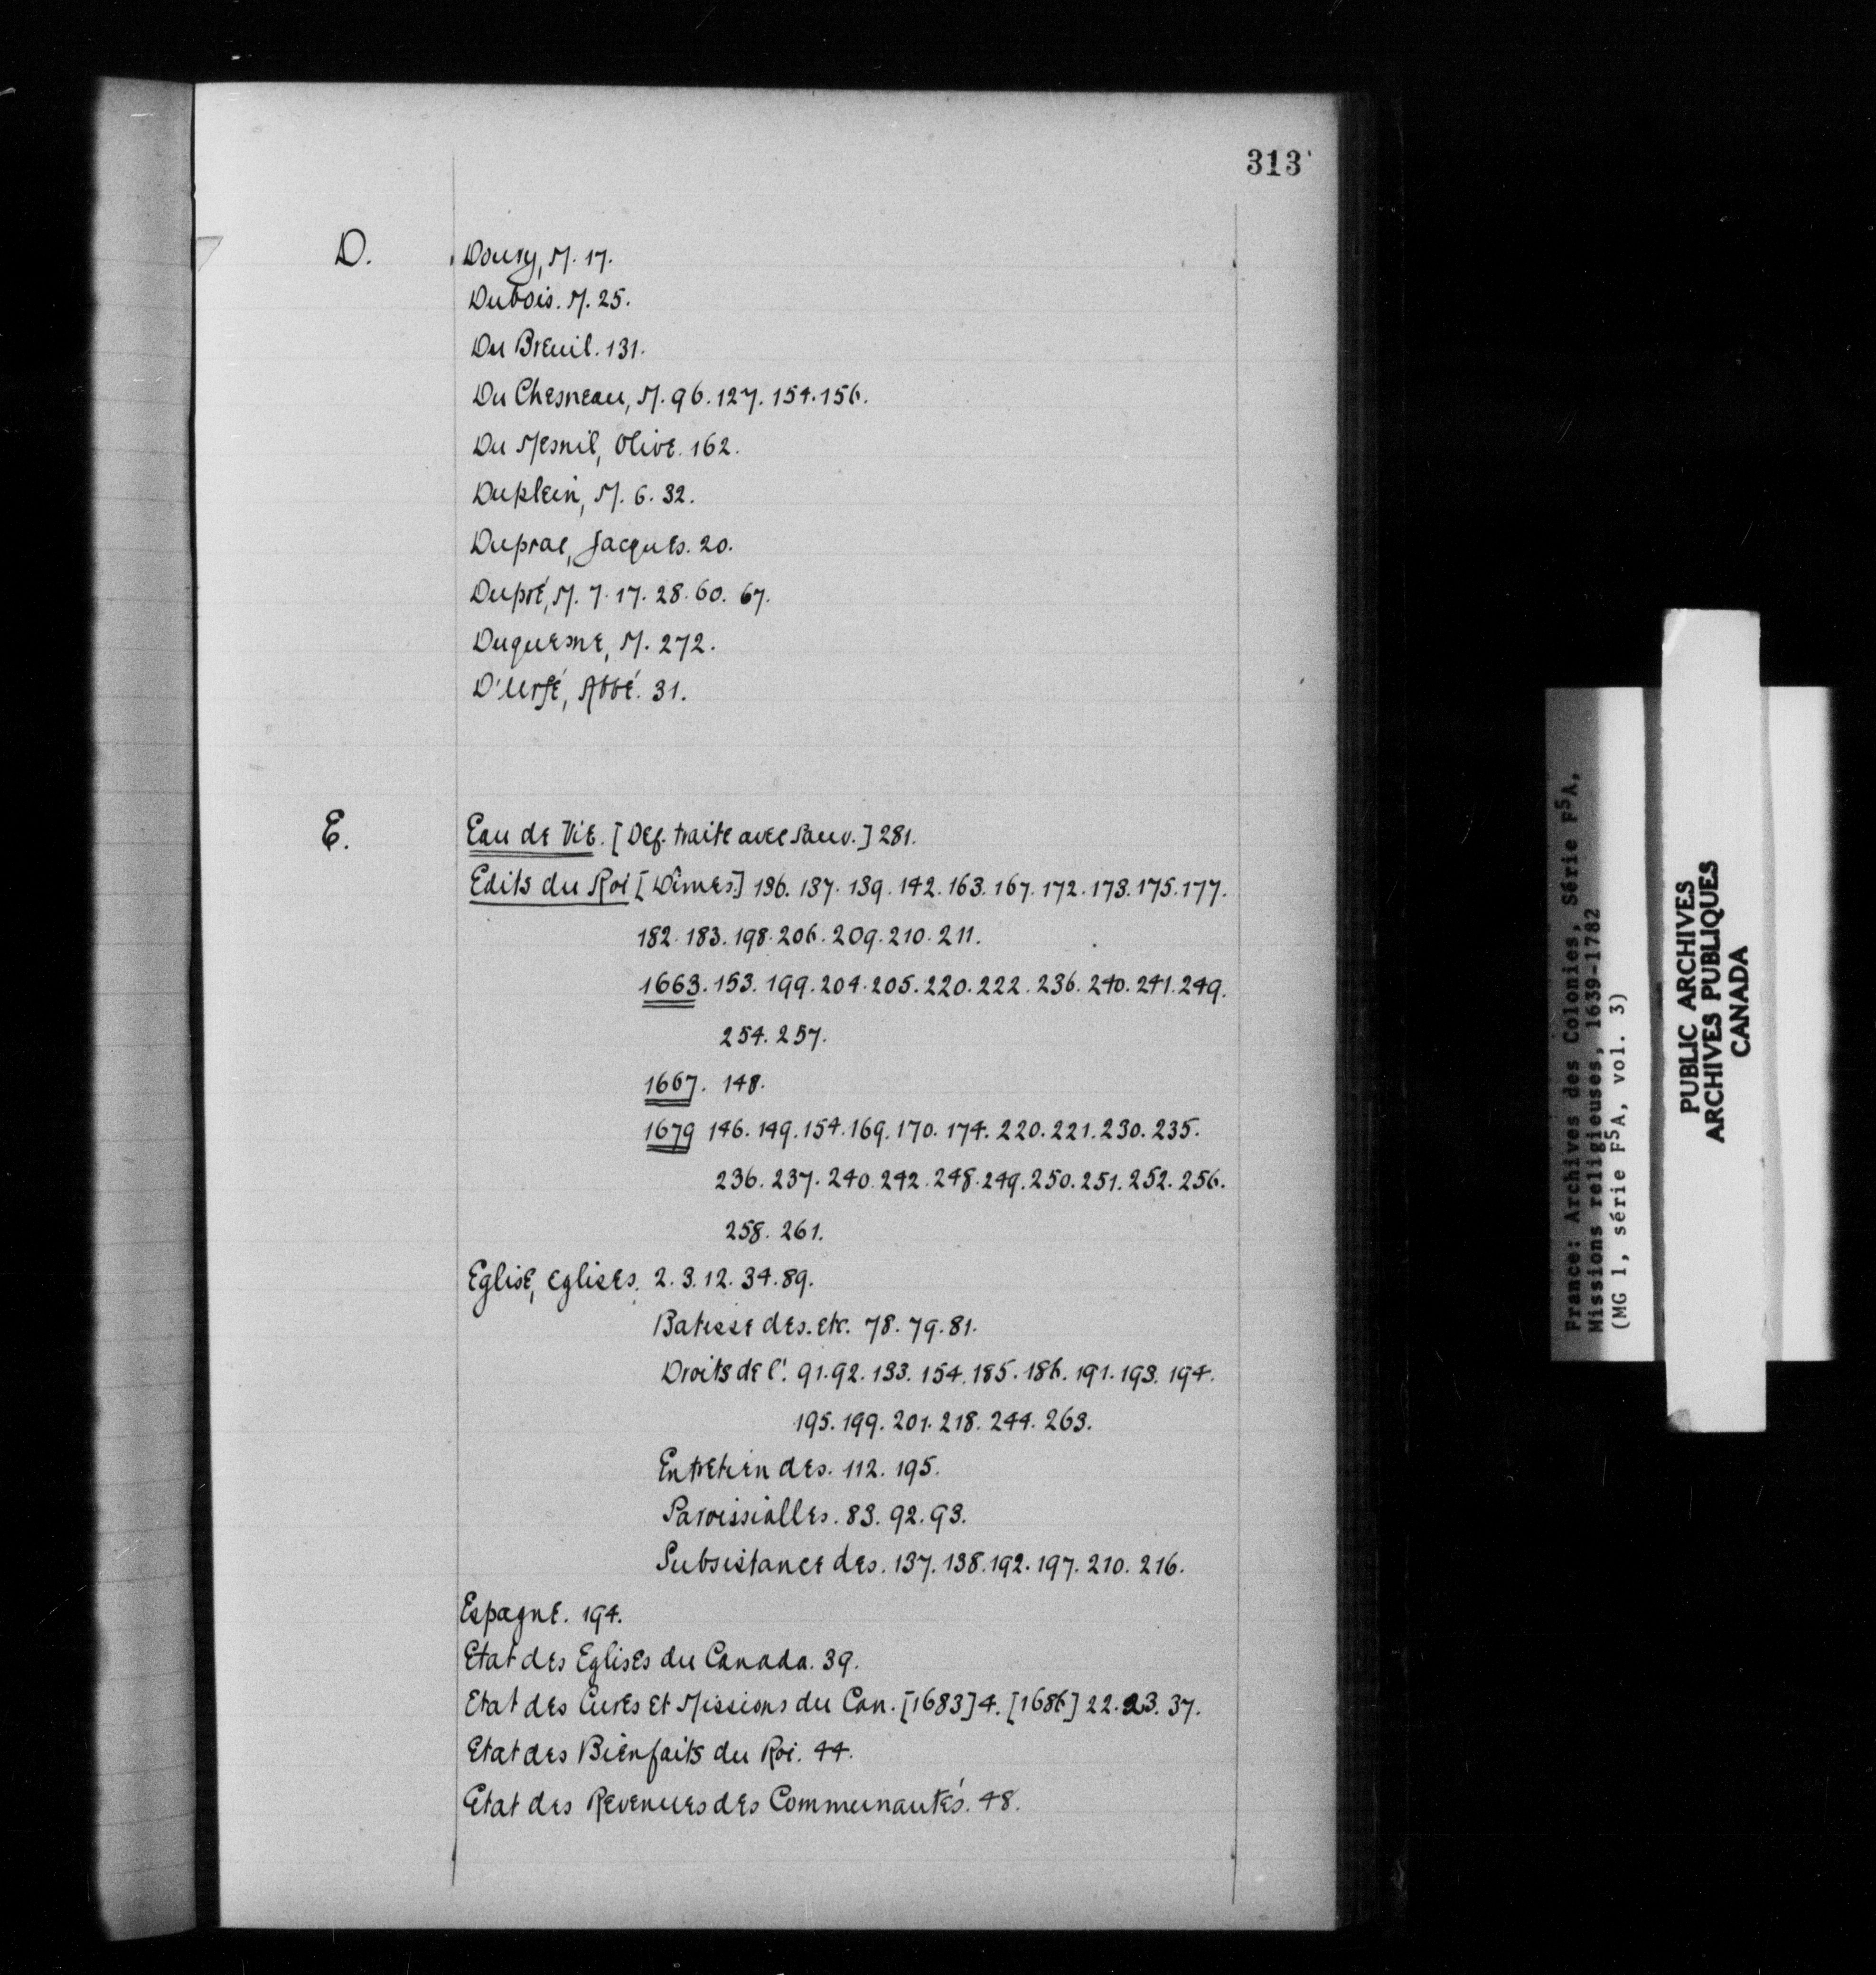 313
D.
Doury, M. 17.
Dubois. M. 25.
Du Breuil. 131.
Du Chesneau, M. 96. 127. 154. 156.
Du Mesnil, Olive. 162.
Duplein, M. 6. 32.
Duprac, Jacques. 20.
Dupré, M. 7. 17. 28. 60. 67.
Duquesne, M. 272.
D'Urfé, Abbé. 31.
E.
Eau de Vie. [Def. traite avec sauv.] 281.
Edits du Roi [Dîmes] 136. 137. 139. 142. 163. 167. 172. 173. 175. 177.
182. 183. 198. 206. 209. 210. 211.
1663. 153. 199. 204. 205. 220. 222. 236. 240. 241. 249.
254. 257.
1667. 148.
1679 146. 149. 154. 169. 170. 174. 220. 221. 230. 235.
236. 237. 240. 242. 248. 249. 250. 251. 252. 256.
258. 261.
Eglise, eglises. 2. 3. 12. 34. 89.
Batisse des. etc. 78. 79. 81.
Droits de l'. 91. 92. 133. 154. 185. 186. 191. 193. 194.
195. 199. 201. 218. 244. 263.
Entretien des. 112. 195.
Paroissialles. 83. 92. 93.
Subsistance des. 137. 138. 192. 197. 210. 216.
Espagne. 194.
Etat des Eglises du Canada. 39.
Etat des Cures et Missions du Can. [1683] 4. [1686] 22. 23. 37.
Etat des Bienfaits du Roi. 44.
Etat des Revenues des Communautés. 48.
France: Archives des Colonies, Série F5A,
Missions religieuses, 1639-1782
(MG 1, série F5A, vol. 3)
PUBLIC ARCHIVES
ARCHIVES PUBLIQUES
CANADA